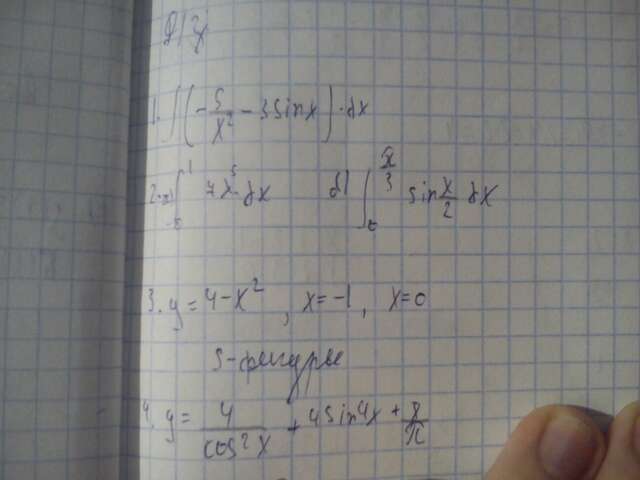 Д/з
1. ∫(-5/x² - 3sinx)·dx
2. а) ∫ 1 7x⁵ dx б) ∫ π/3 sin x/2 dx
3. y = 4 - x², x = -1, x = 0
S-фигуры
4. y = 4/cos²x + 4sin4x + 8/π